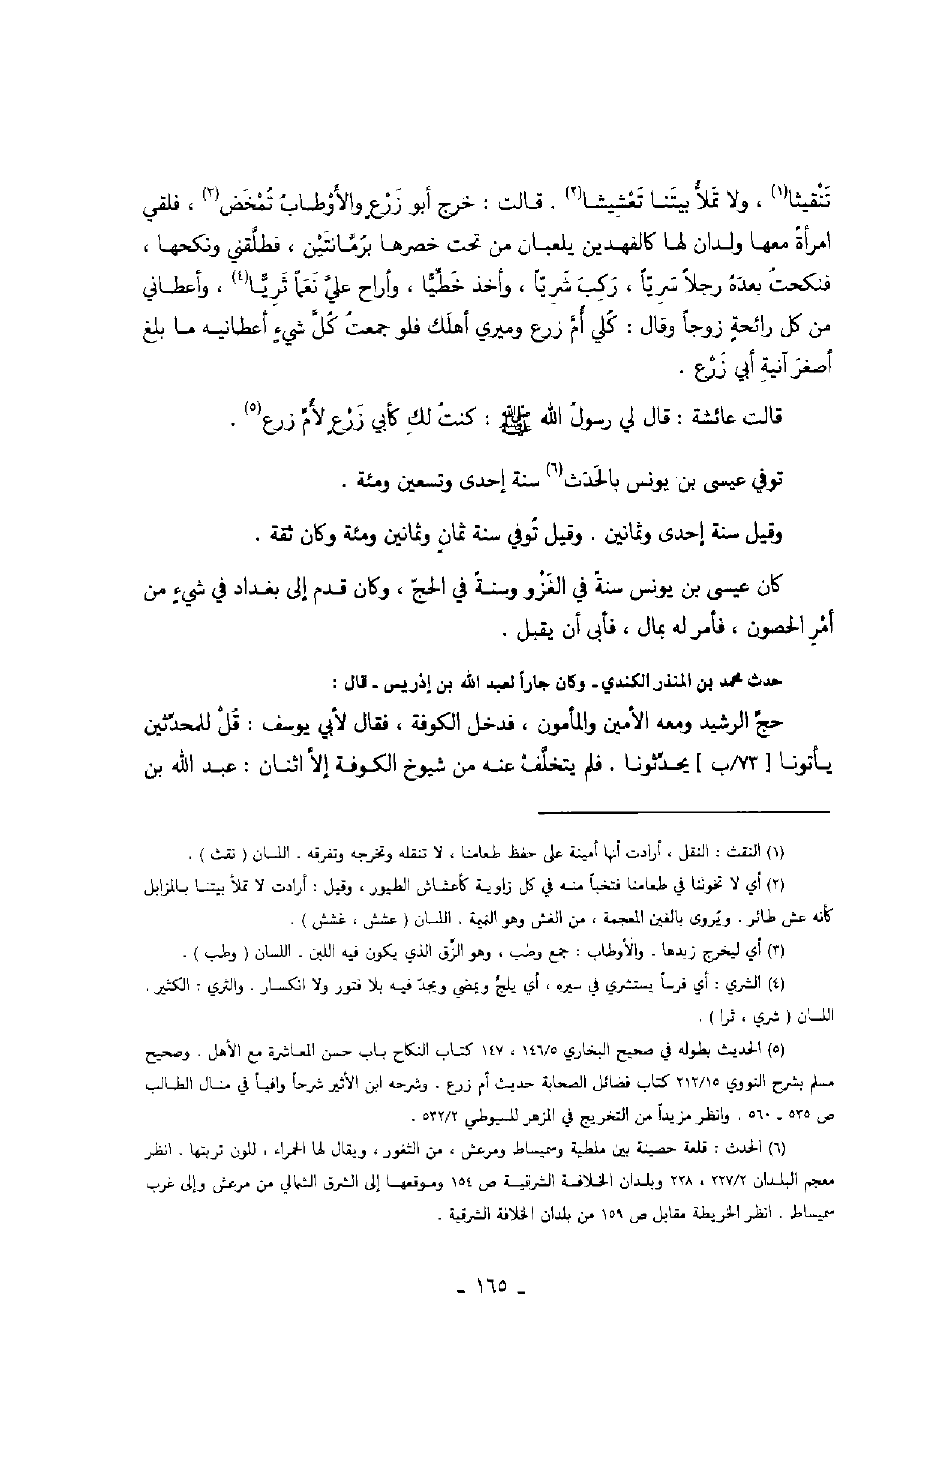 تَنْقيثا(١) ، ولا تملأُ بيتَنا تعْشيشا(٢) . قالت : خرج أبو زَرْعٍ والأوْطابُ تُمْخَض(٣) ، فلقي
امرأةً معها ولدان لها كالفهدين يلعبان من تحت خصرها برُمَّانتَيْن ، فطلَّقني ونكحها ،
فنكحتُ بعدَهُ رجلاً سَرِيّاً ، رَكِبَ شَرِيّاً ، وأخذ خَطِّيّاً ، وأراح عليَّ نَعَماً ثَرِيّاً(٤) ، وأعطاني
من كل رائحةٍ زوجاً وقال : كُلي أُمَّ زرع وميري أهلَكِ فلو جمعتُ كُلَّ شيءٍ أعطانيه ما بلغ
أصغرَ آنيةِ أبي زَرْع .
قالت عائشة : قال لي رسولُ الله ﷺ : كنتُ لكِ كأبي زَرْعٍ لأُمِّ زرع(٥) .
توفي عيسى بن يونس بالحَدَث(٦) سنة إحدى وتسعين ومئة .
وقيل سنة إحدى وثمانين . وقيل تُوفي سنة ثمانٍ وثمانين ومئة وكان ثقة .
كان عيسى بن يونس سنةً في الغَزْو وسنةً في الحجّ ، وكان قدم إلى بغداد في شيءٍ من
أمْرِ الحصون ، فأمر له بمال ، فأبى أن يقبل .
حدث محمد بن المنذر الكندي ـ وكان جاراً لعبد الله بن إدريس ـ قال :
حجَّ الرشيد ومعه الأمين والمأمون ، فدخل الكوفة ، فقال لأبي يوسف : قُلْ للمحدّثين
يأتونا [ ٧٣/ب ] يحدّثونا . فلم يتخلَّفْ عنه من شيوخ الكوفة إلاّ اثنان : عبد الله بن
(١) النقث : النقل ، أرادت أنها أمينة على حفظ طعامنا ، لا تنقله وتخرجه وتفرقه . اللسان ( نقث ) .
(٢) أي لا تخوننا في طعامنا فتخبأ منه في كل زاوية كأعشاش الطيور ، وقيل : أرادت لا تملأ بيتنا بالمزابل
كأنه عش طائر . ويُروى بالغين المعجمة ، من الغش وهو النميمة . اللسان ( عشش ، غشش ) .
(٣) أي ليخرج زبدها . والأوطاب : جمع وطب ، وهو الزِّق الذي يكون فيه اللبن . اللسان ( وطب ) .
(٤) الشري : أي فرساً يستشري في سيره ، أي يلجُّ ويمضي ويجدّ فيه بلا فتور ولا انكسار . والثري : الكثير .
اللسان ( شري ، ثرا ) .
(٥) الحديث بطوله في صحيح البخاري ١٤٦/٥ ، ١٤٧ كتاب النكاح باب حسن المعاشرة مع الأهل . وصحيح
مسلم بشرح النووي ٢١٢/١٥ كتاب فضائل الصحابة حديث أم زرع . وشرحه ابن الأثير شرحاً وافياً في منال الطالب
ص ٥٣٥ ـ ٥٦٠ . وانظر مزيداً من التخريج في المزهر للسيوطي ٥٣٢/٢ .
(٦) الحدث : قلعة حصينة بين ملطية وسميساط ومرعش ، من الثغور ، ويقال لها الحمراء ، للون تربتها . انظر
معجم البلدان ٢٢٧/٢ ، ٢٢٨ وبلدان الخلافة الشرقية ص ١٥٤ وموقعها إلى الشرق الشمالي من مرعش وإلى غرب
سميساط . انظر الخريطة مقابل ص ١٥٩ من بلدان الخلافة الشرقية .
ـ ١٦٥ ـ